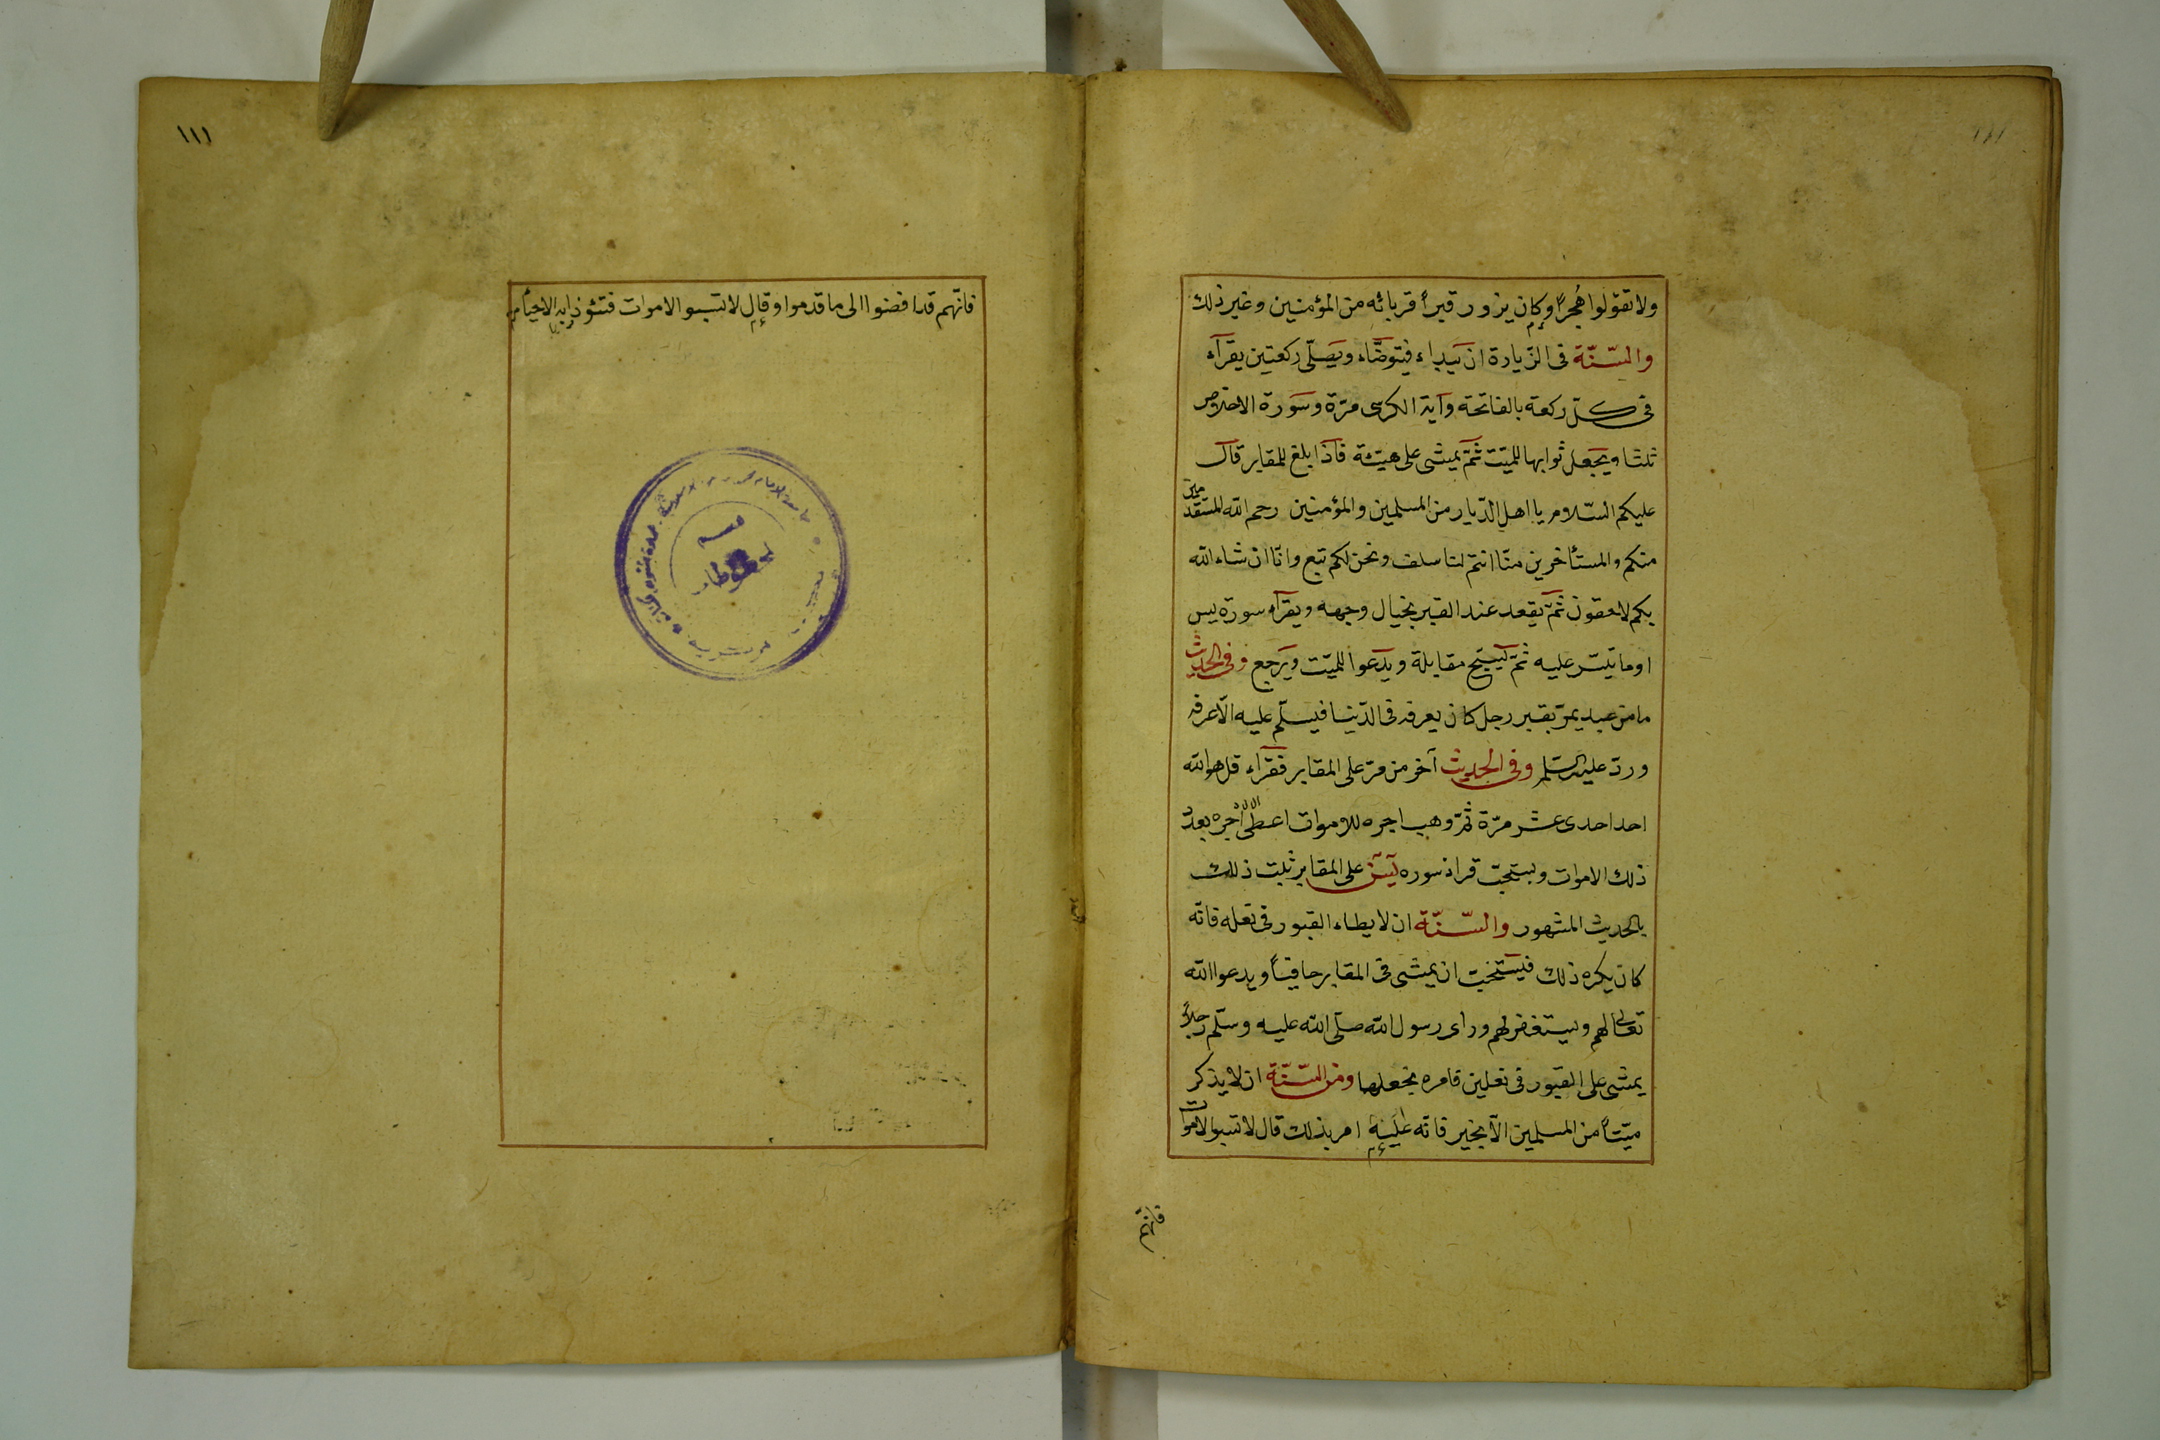 ولا تقولوا هُجراً وكان يزور قبراً قربائه من المؤمنين وغير ذلك
والسّنّة فى الزيارة ان يبداء فيتوضّاء ويصلّى ركعتين يقرآء
فى كلّ ركعة بالفاتحة وآية الكرسى مرّة وسورة الاخلاص
ثلثا ويجعل ثوابها للميّت ثمّ يمشى على هيئة فاذا بلغ للمقابر قال
عليكم السّلام يا اهل الدّيار من المسلمين والمؤمنين رحم الله المستقدمين
منكم والمستأخرين منّا انتم لنا سلف ونحن لكم تبع وانّا ان شاء الله
بكم لاحقون ثمّ يقعد عند القبر بخيال وجهه ويقرآء سورة يس
او ما تيسّر عليه ثمّ ليسبّح مقابلة ويدعوا للميّت ويرجع وفى الحديث
ما من عبد يمرّ بقبر رجل كان يعرفه فى الدّنيا فيسلّم عليه الّا عرفه
وردّ عليه السّلم وفى الحديث آخر من مرّ على المقابر فقرآء قل هو الله
احد احدى عشر مرّة ثمّ وهب اجره للاموات اعطى اجره بعدد
ذلك الاموات ويستحبّ قراة سوره يس على المقابر ثبت ذلك
بالحديث المشهور والسّنّة ان لا يطاء القبور فى نعله فانّه
كان يكره ذلك فيستحبّ ان يمشى فى المقابر حافياً ويدعوا الله
تعالى لهم ويستغفر لهم وراى رسول الله صلّى الله عليه وسلّم رجلاً
يمشى على القبور فى نعلين فامره بخعلها ومن السّنّة ان لا يذكر
ميّتاً من المسلمين الّا بخير فانّه عليه امر بذلك قال لا تسبوا الاموات
فانّهم
١١١
فانّهم قد افضوا الى ما قدموا وقال لا تسبوا الاموات فتئوذ به الاحياء
قسم